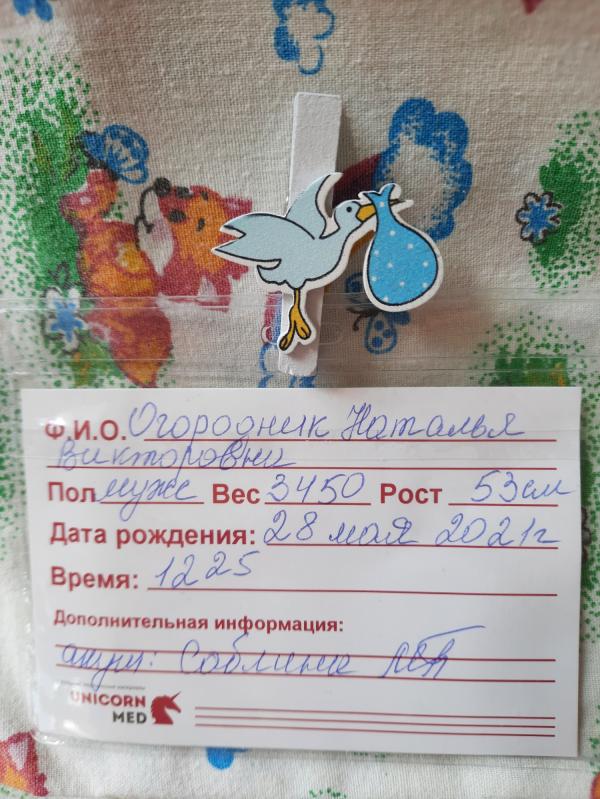 Ф.И.О. Огородник Наталья
Викторовна
Пол муж Вес 3450 Рост 53 см
Дата рождения: 28 мая 2021г
Время: 12 25
Дополнительная информация:
акуш:
UNICORN
MED